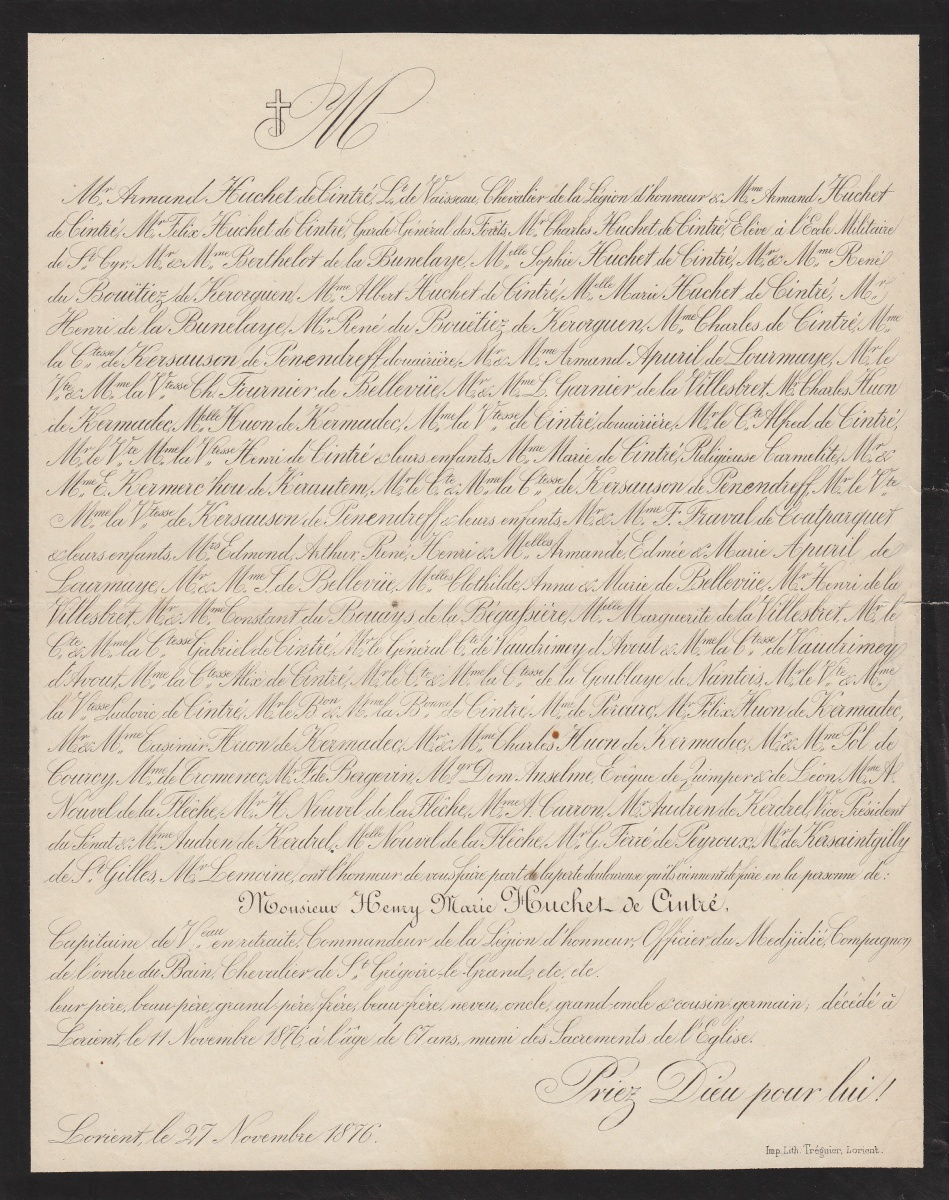 M
Mr. Armand Huchet de Cintré, Lt. de Vaisseau, Chevalier de la Légion d'honneur & Mme. Armand Huchet
de Cintré, Mr. Félix Huchet de Cintré, Garde Général des Forêts, Mr. Charles Huchet de Cintré, Elève à l'Ecole Militaire
de St. Cyr, Mr. & Mme. Berthelot de la Bunelaye, Melle. Sophie Huchet de Cintré, Mr. & Mme. René
du Bouëtiez de Kerorguen, Mme. Albert Huchet de Cintré, Melle. Marie Huchet de Cintré, Mr.
Henri de la Bunelaye, Mr. René du Bouëtiez de Kerorguen, Mme. Charles de Cintré, Mme.
la Ctesse. de Kersauson de Penendreff douairière, Mr. & Mme. Armand Apuril de Lourmaye, Mr. le
Vte. & Mme. la Vtesse. Ch. Fournier de Bellevüe, Mr. & Mme. L. Garnier de la Villesbret, Mr. Charles Huon
de Kermadec, Melle. Huon de Kermadec, Mme. la Vtesse. de Cintré, douairière, Mr. le Cte. Alfred de Cintré,
Mr. le Vte. Mme. la Vtesse. Henri de Cintré & leurs enfants, Mme. Marie de Cintré, Religieuse Carmelite, Mr. &
Mme. E. Kermerc'hou de Kerautem, Mr. le Cte. & Mme. la Ctesse. de Kersauson de Penendreff, Mr. le Vte.
Mme. la Vtesse. de Kersauson de Penendreff & leurs enfants, Mr. & Mme. F. Fraval de Coatparquet
& leurs enfants, Mrs. Edmond, Arthur, René, Henri & Melles. Armande, Edmée & Marie Apuril de
Lourmaye, Mr. & Mme. J. de Bellevüe, Melles. Clothilde, Anna & Marie de Bellevüe, Mr. Henri de la
Villesbret, Mr. & Mme. Constant du Bouays de la Bégassière, Melle. Marguerite de la Villesbret, Mr. le
Cte. & Mme. la Ctesse. Gabriel de Cintré, Mr. le Général Cte. de Vaudrimey d'Avout & Mme. la Ctesse. de Vaudrimey
d'Avout, Mme. la Ctesse. Alix de Cintré, Mr. le Cte. & Mme. la Ctesse. de la Goublaye de Nantois, Mr. le Vte. & Mme.
la Vtesse. Ludovic de Cintré, Mr. le Bon. & Mme. la Bonne. de Cintré, Mme. de Percaro, Mr. Félix Huon de Kermadec,
Mr. & Mme. Casimir Huon de Kermadec, Mr. & Mme. Charles Huon de Kermadec, Mr. & Mme. Pol de
Courcy, Mme. de Tromenec, Mr. F. de Bergevin, Mgr. Dom Anselme, Evêque de Quimper & de Léon, Mme. A.
Nouvel de la Flèche, Mr. H. Nouvel de la Flèche, Mme. A. Carron, Mr. Audren de Kerdrel, Vice Président
du Sénat & Mme. Audren de Kerdrel, Melle. Nouvel de la Flèche, Mr. G. Ferré de Peyroux, Mr. de Kersaintgilly
de St. Gilles, Mr. Lemoine, ont l'honneur de vous faire part de la perte douloureuse qu'ils viennent de faire en la personne de:
Monsieur Henry Marie Huchet de Cintré,
Capitaine de Veau. en retraite, Commandeur de la Légion d'honneur, Officier du Medjidié, Compagnon
de l'ordre du Bain, Chevalier de St. Grégoire-le-Grand, etc. etc.
leur père, beau-père, grand-père, frère, beau-frère, neveu, oncle, grand-oncle & cousin-germain; décédé à
Lorient, le 11 Novembre 1876, à l'âge de 67 ans, muni des Sacrements de l'Eglise.
Priez Dieu pour lui!
Lorient, le 27 Novembre 1876.
Imp. Lith. Tréguier, Lorient.